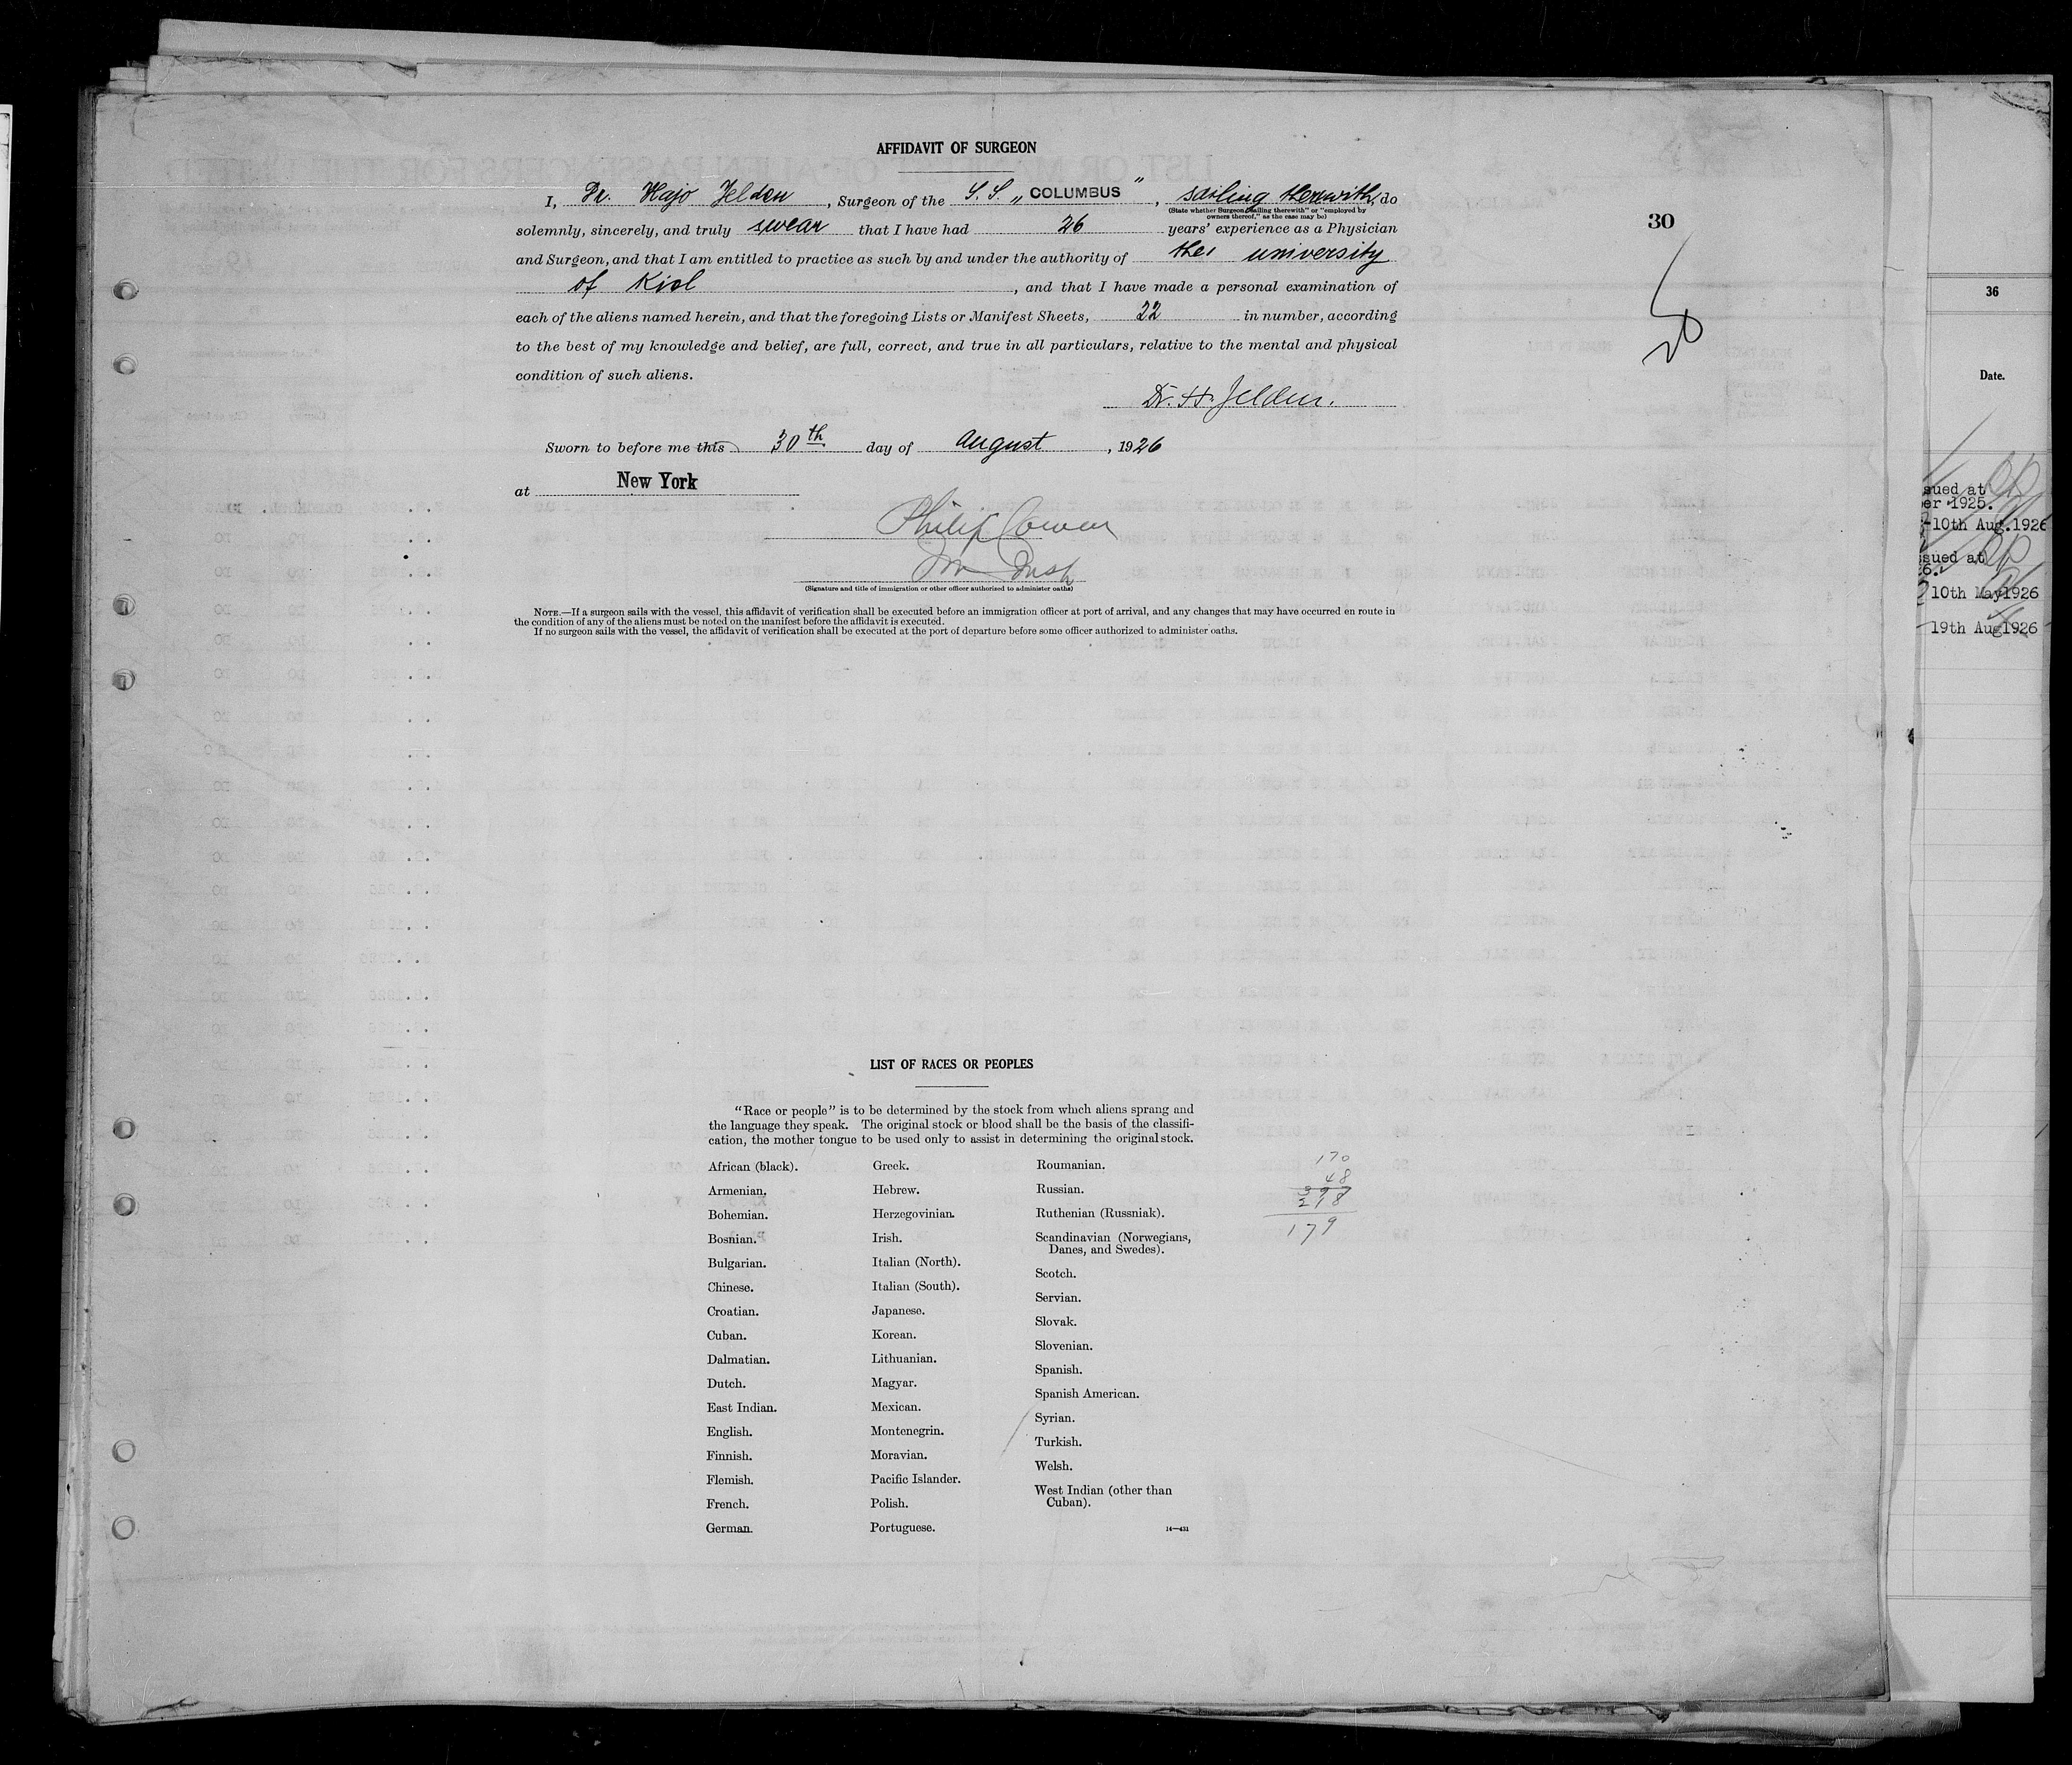 AFFIDAVIT OF SURGEON
I, Dr. Hajo Jelden, Surgeon of the S.S. „COLUMBUS", sailing therewith, do
(State whether Surgeon "sailing therewith" or "employed by
owners thereof," as the case may be)
solemnly, sincerely, and truly swear that I have had 26 years' experience as a Physician
and Surgeon, and that I am entitled to practice as such by and under the authority of the university
of Kiel, and that I have made a personal examination of
each of the aliens named herein, and that the foregoing Lists or Manifest Sheets, 22 in number, according
to the best of my knowledge and belief, are full, correct, and true in all particulars, relative to the mental and physical
condition of such aliens.
Dr. H. Jelden.
Sworn to before me this 30th day of August, 1926
at New York
Philip Cowen
Imm Insp
(Signature and title of immigration or other officer authorized to administer oaths)
NOTE.—If a surgeon sails with the vessel, this affidavit of verification shall be executed before an immigration officer at port of arrival, and any changes that may have occurred en route in
the condition of any of the aliens must be noted on the manifest before the affidavit is executed.
If no surgeon sails with the vessel, the affidavit of verification shall be executed at the port of departure before some officer authorized to administer oaths.
30
36
Date.
sued at
er 1925.
10th Aug.1926
sued at
6.
10th May1926
19th Aug1926
LIST OF RACES OR PEOPLES
"Race or people" is to be determined by the stock from which aliens sprang and
the language they speak. The original stock or blood shall be the basis of the classifi-
cation, the mother tongue to be used only to assist in determining the original stock.
African (black).
Armenian.
Bohemian.
Bosnian.
Bulgarian.
Chinese.
Croatian.
Cuban.
Dalmatian.
Dutch.
East Indian.
English.
Finnish.
Flemish.
French.
German.
Greek.
Hebrew.
Herzegovinian.
Irish.
Italian (North).
Italian (South).
Japanese.
Korean.
Lithuanian.
Magyar.
Mexican.
Montenegrin.
Moravian.
Pacific Islander.
Polish.
Portuguese.
Roumanian.
Russian.
Ruthenian (Russniak).
Scandinavian (Norwegians,
Danes, and Swedes).
Scotch.
Servian.
Slovak.
Slovenian.
Spanish.
Spanish American.
Syrian.
Turkish.
Welsh.
West Indian (other than
Cuban).
14—431
170
48
397
218
179